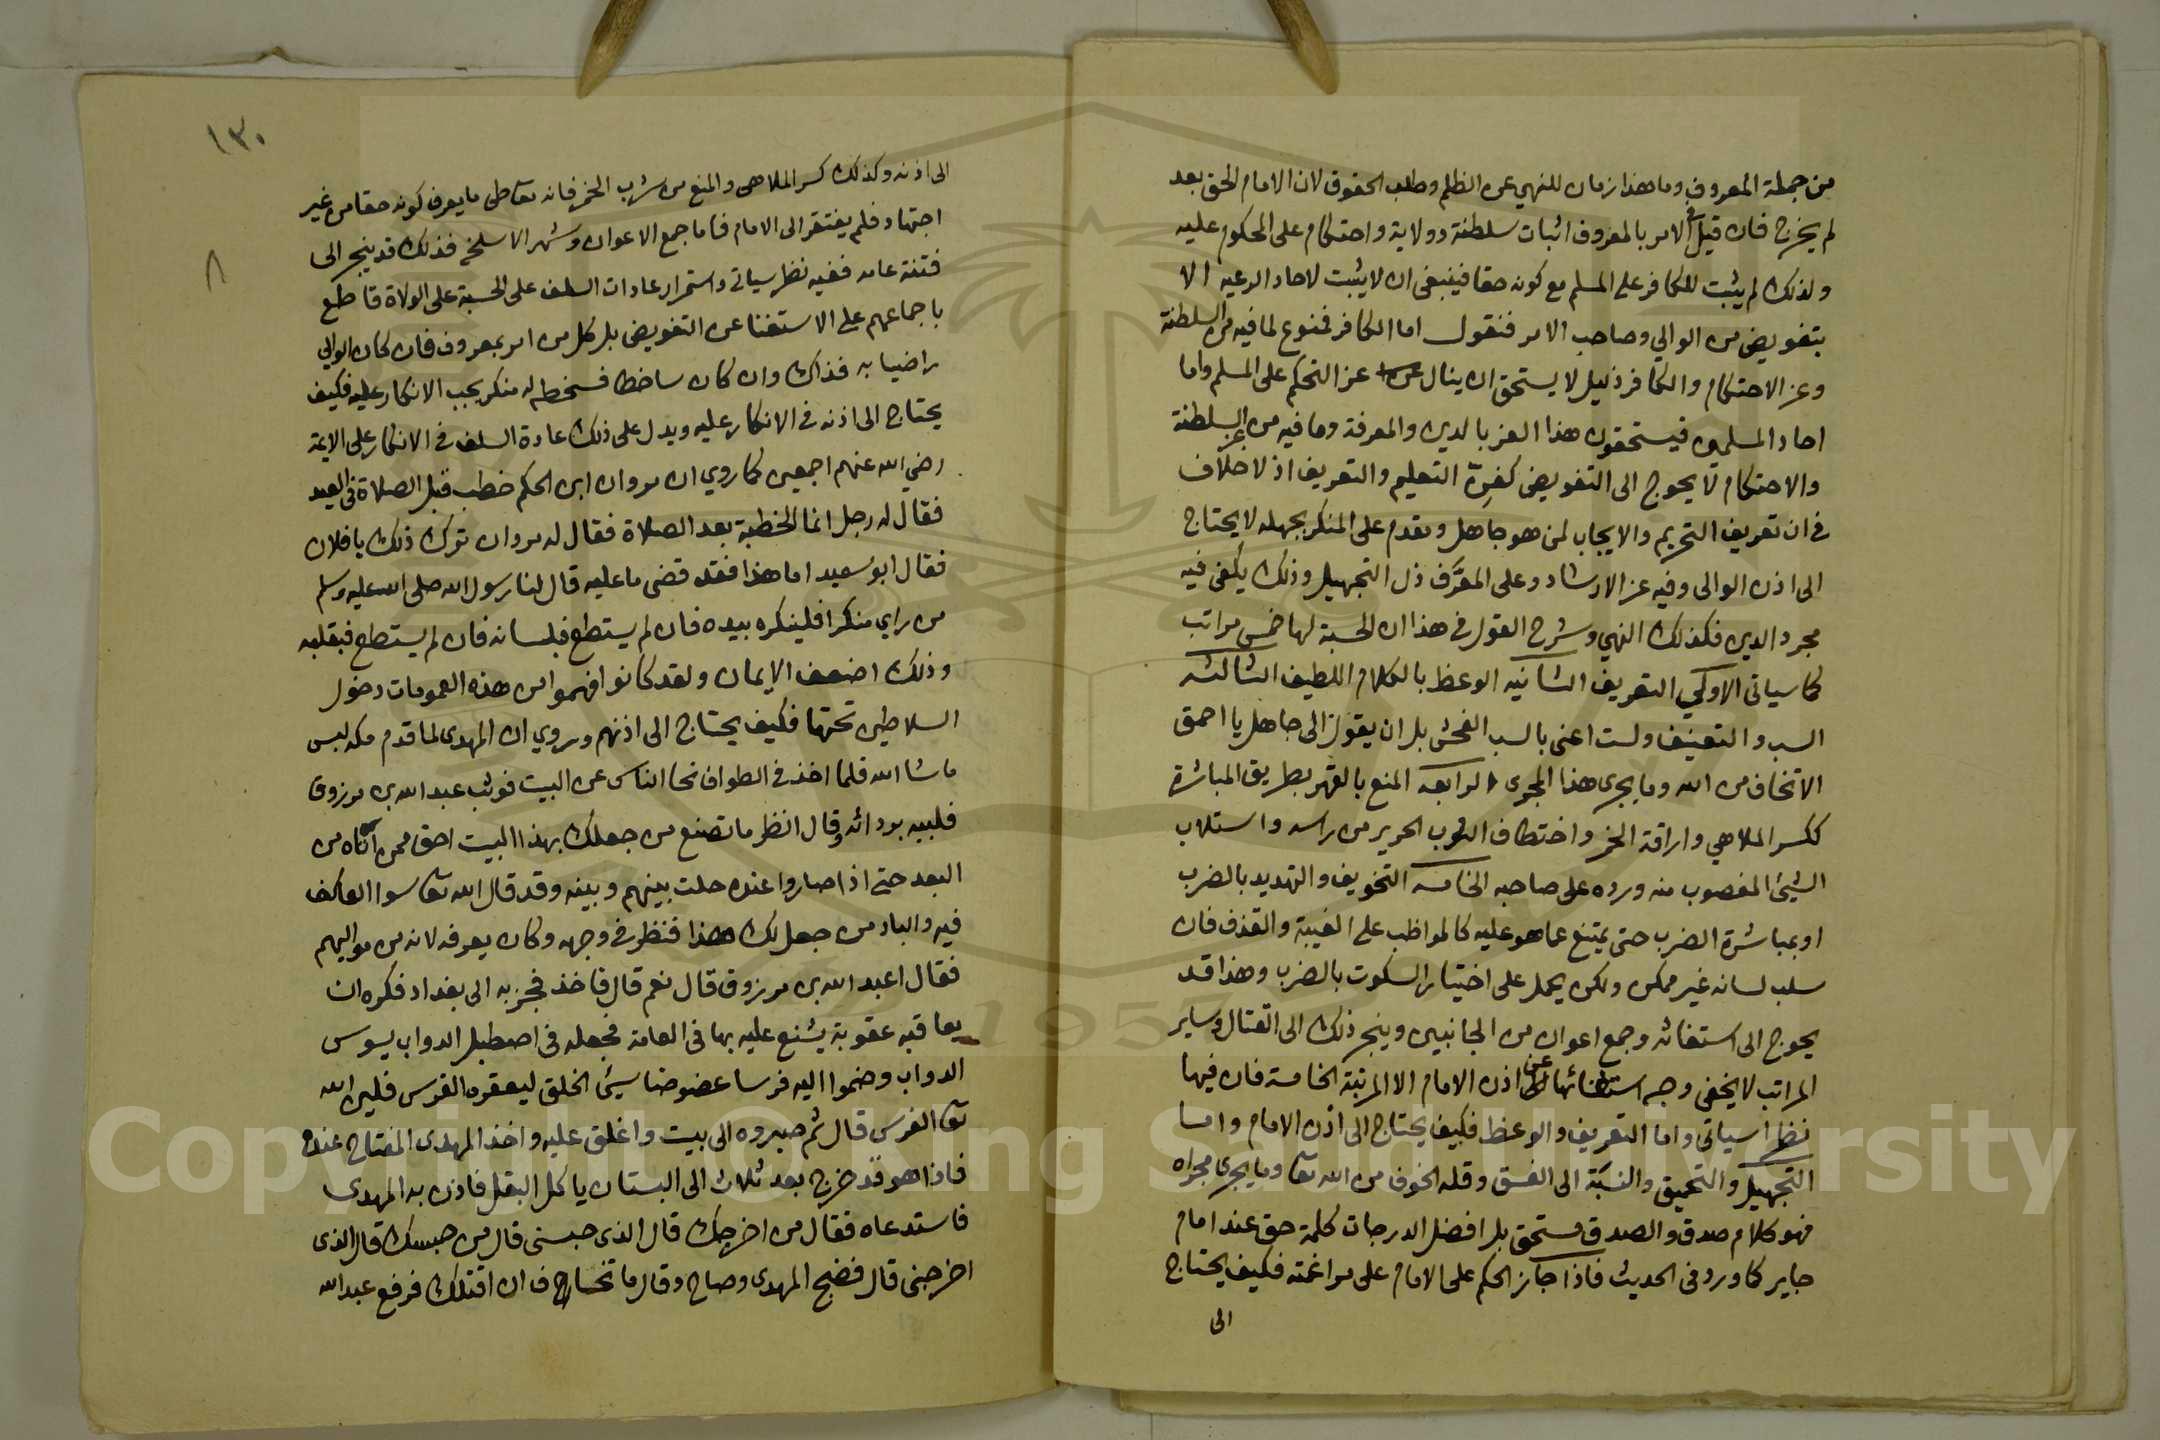 من جملة المعروف وما هذا زمان للنهي عن الظلم وطلب الحقوق لان الامام الحق بعد
لم يخرج فان قيل في الامر بالمعروف اثبات سلطنة وولاية واحتكام على المحكوم عليه
ولذلك لم يثبت للكافر على المسلم مع كونه حقا فينبغى ان لا يثبت لاحاد الرعيه الا
بتفويض من الوالي وصاحب الامر فنقول اما الكافر فممنوع لما فيه من السلطنة
وعز الاحتكام والكافر ذليل لا يستحق ان ينال عز التحكم على المسلم واما
احاد المسلمين فيستحقون هذا العز بالدين والمعرفة وما فيه من عز السلطنة
والاحتكام لا يحوج الى التفويض كعزة التعليم والتعريف اذ لا خلاف
في ان تعريف التحريم والايجاب لمن هو جاهل ومقدم على المنكر بجهله لا يحتاج
الى اذن الوالى وفيه عز الارشاد وعلى المعرَّف ذل التجهيل وذلك يكفى فيه
مجرد الدين فكذلك النهي وشرح القول في هذا ان الحسبة لها خمس مراتب
كما سياتى الاولي التعريف الثانيه الوعظ بالكلام اللطيف الثالثه
السب والتعنيف ولست اعنى بالسب الفحش بل ان يقول الى جاهل يا احمق
الا تخاف من الله وما يجرى هذا المجرى الرابعه المنع بالقهر بطريق المباشرة
ككسر الملاهي واراقة الخمر واختطاف الثوب الحرير من راسه واستلاب
الشيئ المغصوب منه ورده على صاحبه الخامسه التخويف والتهديد بالضرب
او بمباشرة الضرب حتى يمتنع عما هو عليه كالمواظب على الغيبة والقذف فان
سلب لسانه غير ممكن ولكن يحمل على اختيار السكوت بالضرب وهذا قد
يحوج الى استغاثه وجمع اعوان من الجانبين وينجر ذلك الى القتال وساير
المراتب لا يخفى وجه استغنائها عن اذن الامام الا المرتبة الخامسة فان فيها
نظرا سياتى واما التعريف والوعظ فكيف يحتاج الى اذن الامام واما
التجهيل والتحميق والنسبة الى الفسق وقله الخوف من الله تعا وما يجرى مجراه
فهو كلام صدق والصدق مستحق بل افضل الدرجات كلمة حق عند امام
جاير كما ورد في الحديث فاذا جاز الحكم على الامام على مراغمته فكيف يحتاج
الى
١٣٠
٨
الى اذنه وكذلك كسر الملاهى والمنع من شرب الخمر فانه تعاطى ما يعرف كونه حقا من غير
اجتهاد فلم يفتقر الى الامام فاما جمع الاعوان وشهر الاسلحه فذلك قد ينجر الى
فتنة عامه ففيه نظر سياتي واستمرار عادات السلف على الحسبة على الولاة قاطع
باجماعهم على الاستغنا عن التفويض بل كل من امر بمعروف فان كان الوالي
راضيا به فذاك وان كان ساخطا فسخطه له منكر يجب الانكار عليه فكيف
يحتاج الى اذنه في الانكار عليه ويدل على ذلك عادة السلف في الانكار على الايمة
رضي الله عنهم اجمعين كما روي ان مروان ابن الحكم خطب قبل الصلاة في العيد
فقال له رجل انما الخطبة بعد الصلاة فقال له مروان ترك ذلك يا فلان
فقال ابو سعيد اما هذا فقد قضى ما عليه قال لنا رسول الله صلى الله عليه وسلم
من راي منكرا فلينكره بيده فان لم يستطع فبلسانه فان لم يستطع فبقلبه
وذلك اضعف الايمان ولقد كانوا فهموا من هذه العمومات دخول
السلاطين تحتها فكيف يحتاج الى اذنهم وروي ان المهدى لما قدم مكه لبس
ما شا الله فلما اخذ في الطواف نحا الناس عن البيت فوثب عبد الله بن مرزوق
فلببه بردائه وقال انظر ما تصنع من جعلك بهذا البيت احق ممن اتاه من
البعد حتى اذا صاروا عنده حلت بينهم وبينه وقد قال الله تعا سوا العاكف
فيه والباد من جعل لك هذا فنظر في وجهه وكان يعرفه لانه من مواليهم
فقال اعبد الله بن مرزوق قال نعم قال فاخذ فجز به الى بغداد فكره ان
يعاقبه عقوبة يشنع عليه بها في العامة فجعله في اصطبل الدواب يسوس
الدواب وضموا اليه فرسا عضوضا سيئ الخلق ليعقره الفرس فلين الله
تعا الفرس قال ثم صيروه الى بيت واغلق عليه واخذ المهدى المفتاح عنده
فاذا هو قد خرج بعد ثلاث الى البستان ياكل البقل فاذن به المهدى
فاستدعاه فقال من اخرجك قال الذى حبسنى قال من حبسك قال الذى
اخرجنى قال فضج المهدى وصاح وقال ما تخاف ان اقتلك فرفع عبد الله